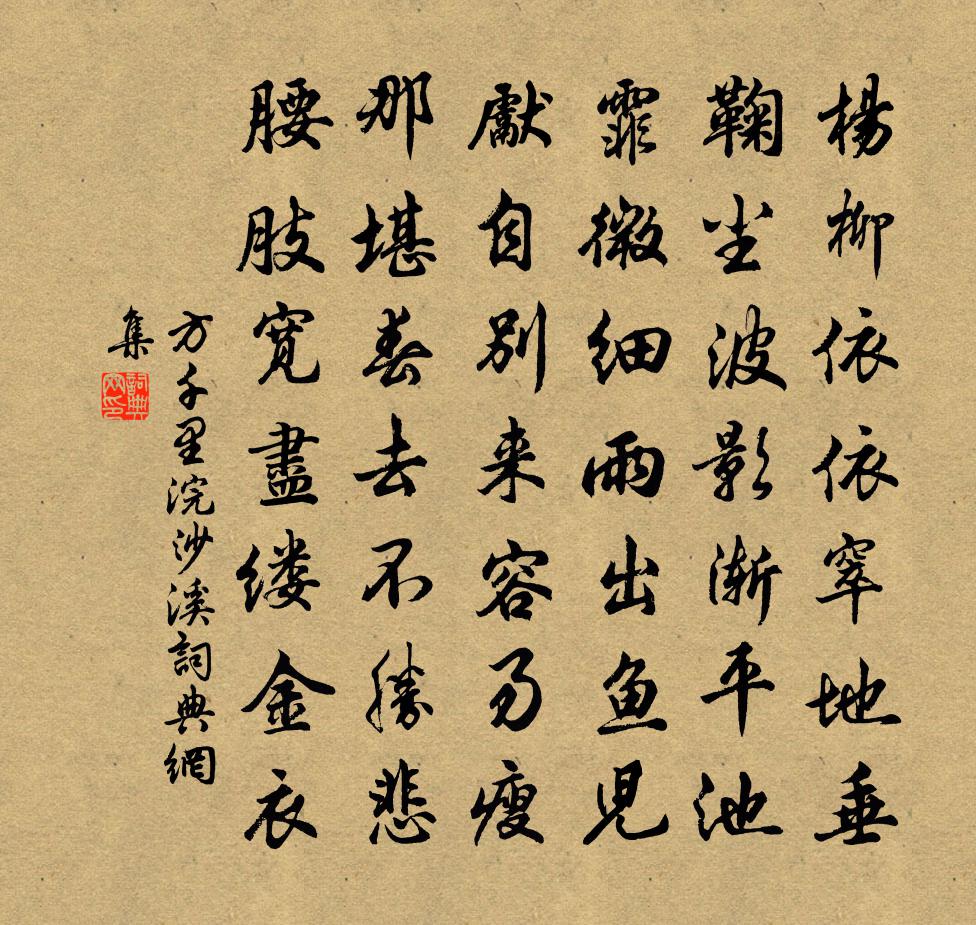 楊柳依依窣地垂
鞠尘波影漸平池
霏微細雨出鱼児
獻自别来容易瘦
那堪春去不勝悲
腰肢寬盡縷金衣
方千里浣沙溪詞典網
集
詞典网印